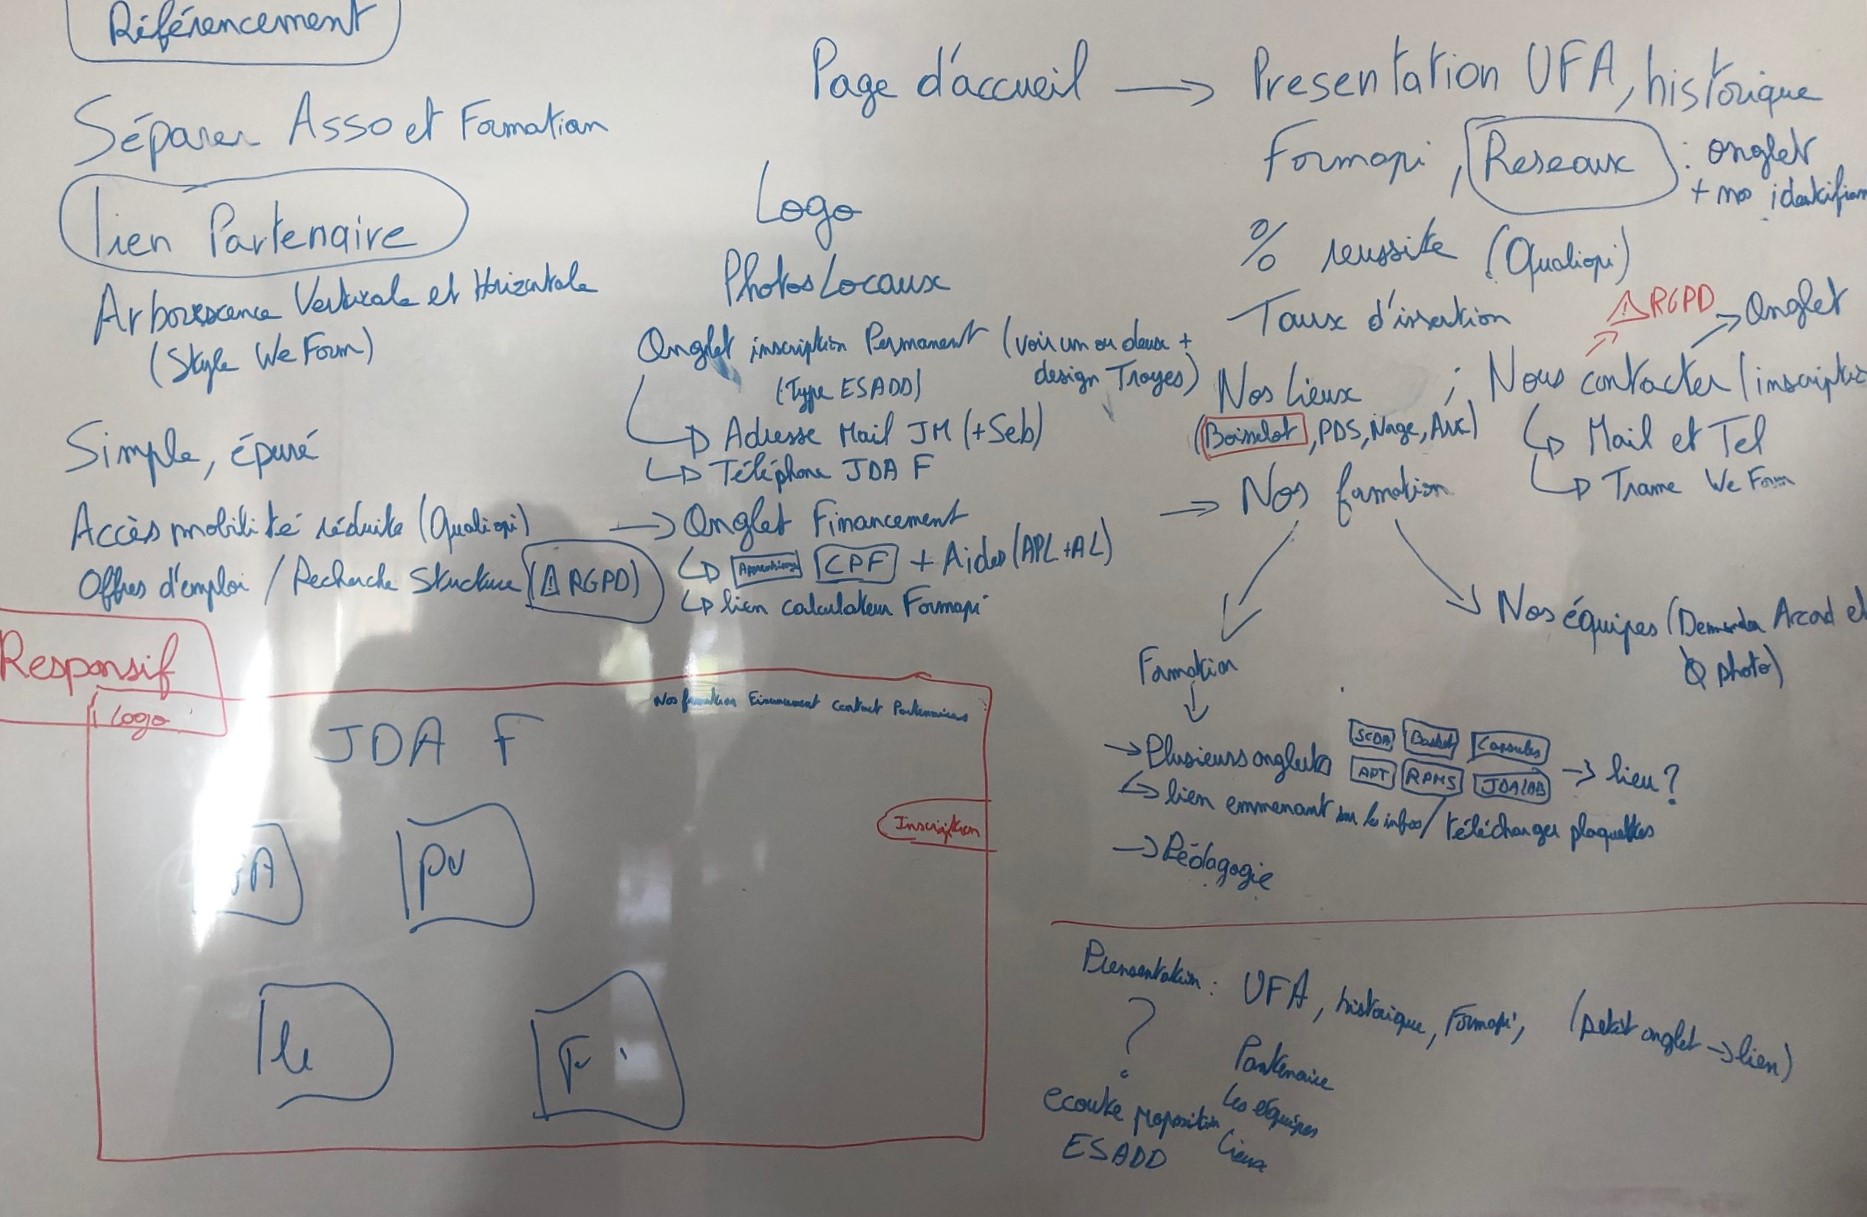 Référencement
Séparer Asso et Formation
lien Partenaire
Arborescence Verticale et Horizontale
(Style We Form)
Simple, épuré
Accès mobilité réduite (Qualiopi)
Offres d'emploi / Recherche Structure (⚠ RGPD)
Logo
Photos Locaux
Onglet inscription Permanent (voir un ou deux +
(Type ESADD) design Troyes)
↳ Adresse Mail JM (+Seb)
↳ Téléphone JDA F
→ Onglet Financement
↳ CPF + Aides (APL + AL)
↳ lien calculateur Formapi
Page d'accueil → Presentation UFA, historique
Formapi, Reseaux : onglet
+ nos
% reussite (Qualiopi)
Taux d'insertion
⚠ RGPD → Onglet
Nos lieux ; Nous contacter (
(Boisselot, PDS, Nage, Arc)
↳ Mail et Tel
↳ Trame We Form
→ Nos formation
Nos équipes (Demander Arcad et
photo)
Formation
→ Plusieurs onglets SCDA Basket Capsules
APT RPMS JDALAB → lieu ?
↳ lien emmenant sur les infos / télécharger plaquettes
→ Pédagogie
Responsif
Logo
Nos formation Financement Contact Partenaires
JDA F
Inscription
Presentation : UFA, historique, Formapi, (petit onglet → lien)
?
Partenaire
Les équipes
Lieux
ecoute proposition
ESADD